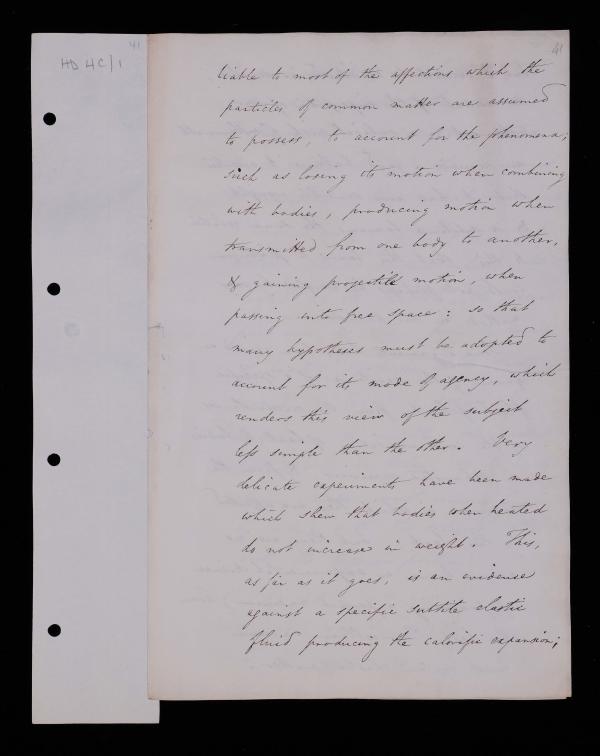 41
41
HD 4C/1
liable to most of the affections which the
particles of common matter are assumed
to possess, to account for the phenomena;
such as losing its motion when combining
with bodies, producing motion when
transmitted from one body to another,
& gaining projectile motion, when
passing into free space: so that
many hypotheses must be adopted to
account for its mode of agency, which
renders this view of the subject
less simple than the other. Very
delicate experiments have been made
which shew that bodies when heated
do not increase in weight. This,
as far as it goes, is an evidence
against a specific subtile elastic
fluid producing the calorific expansion;